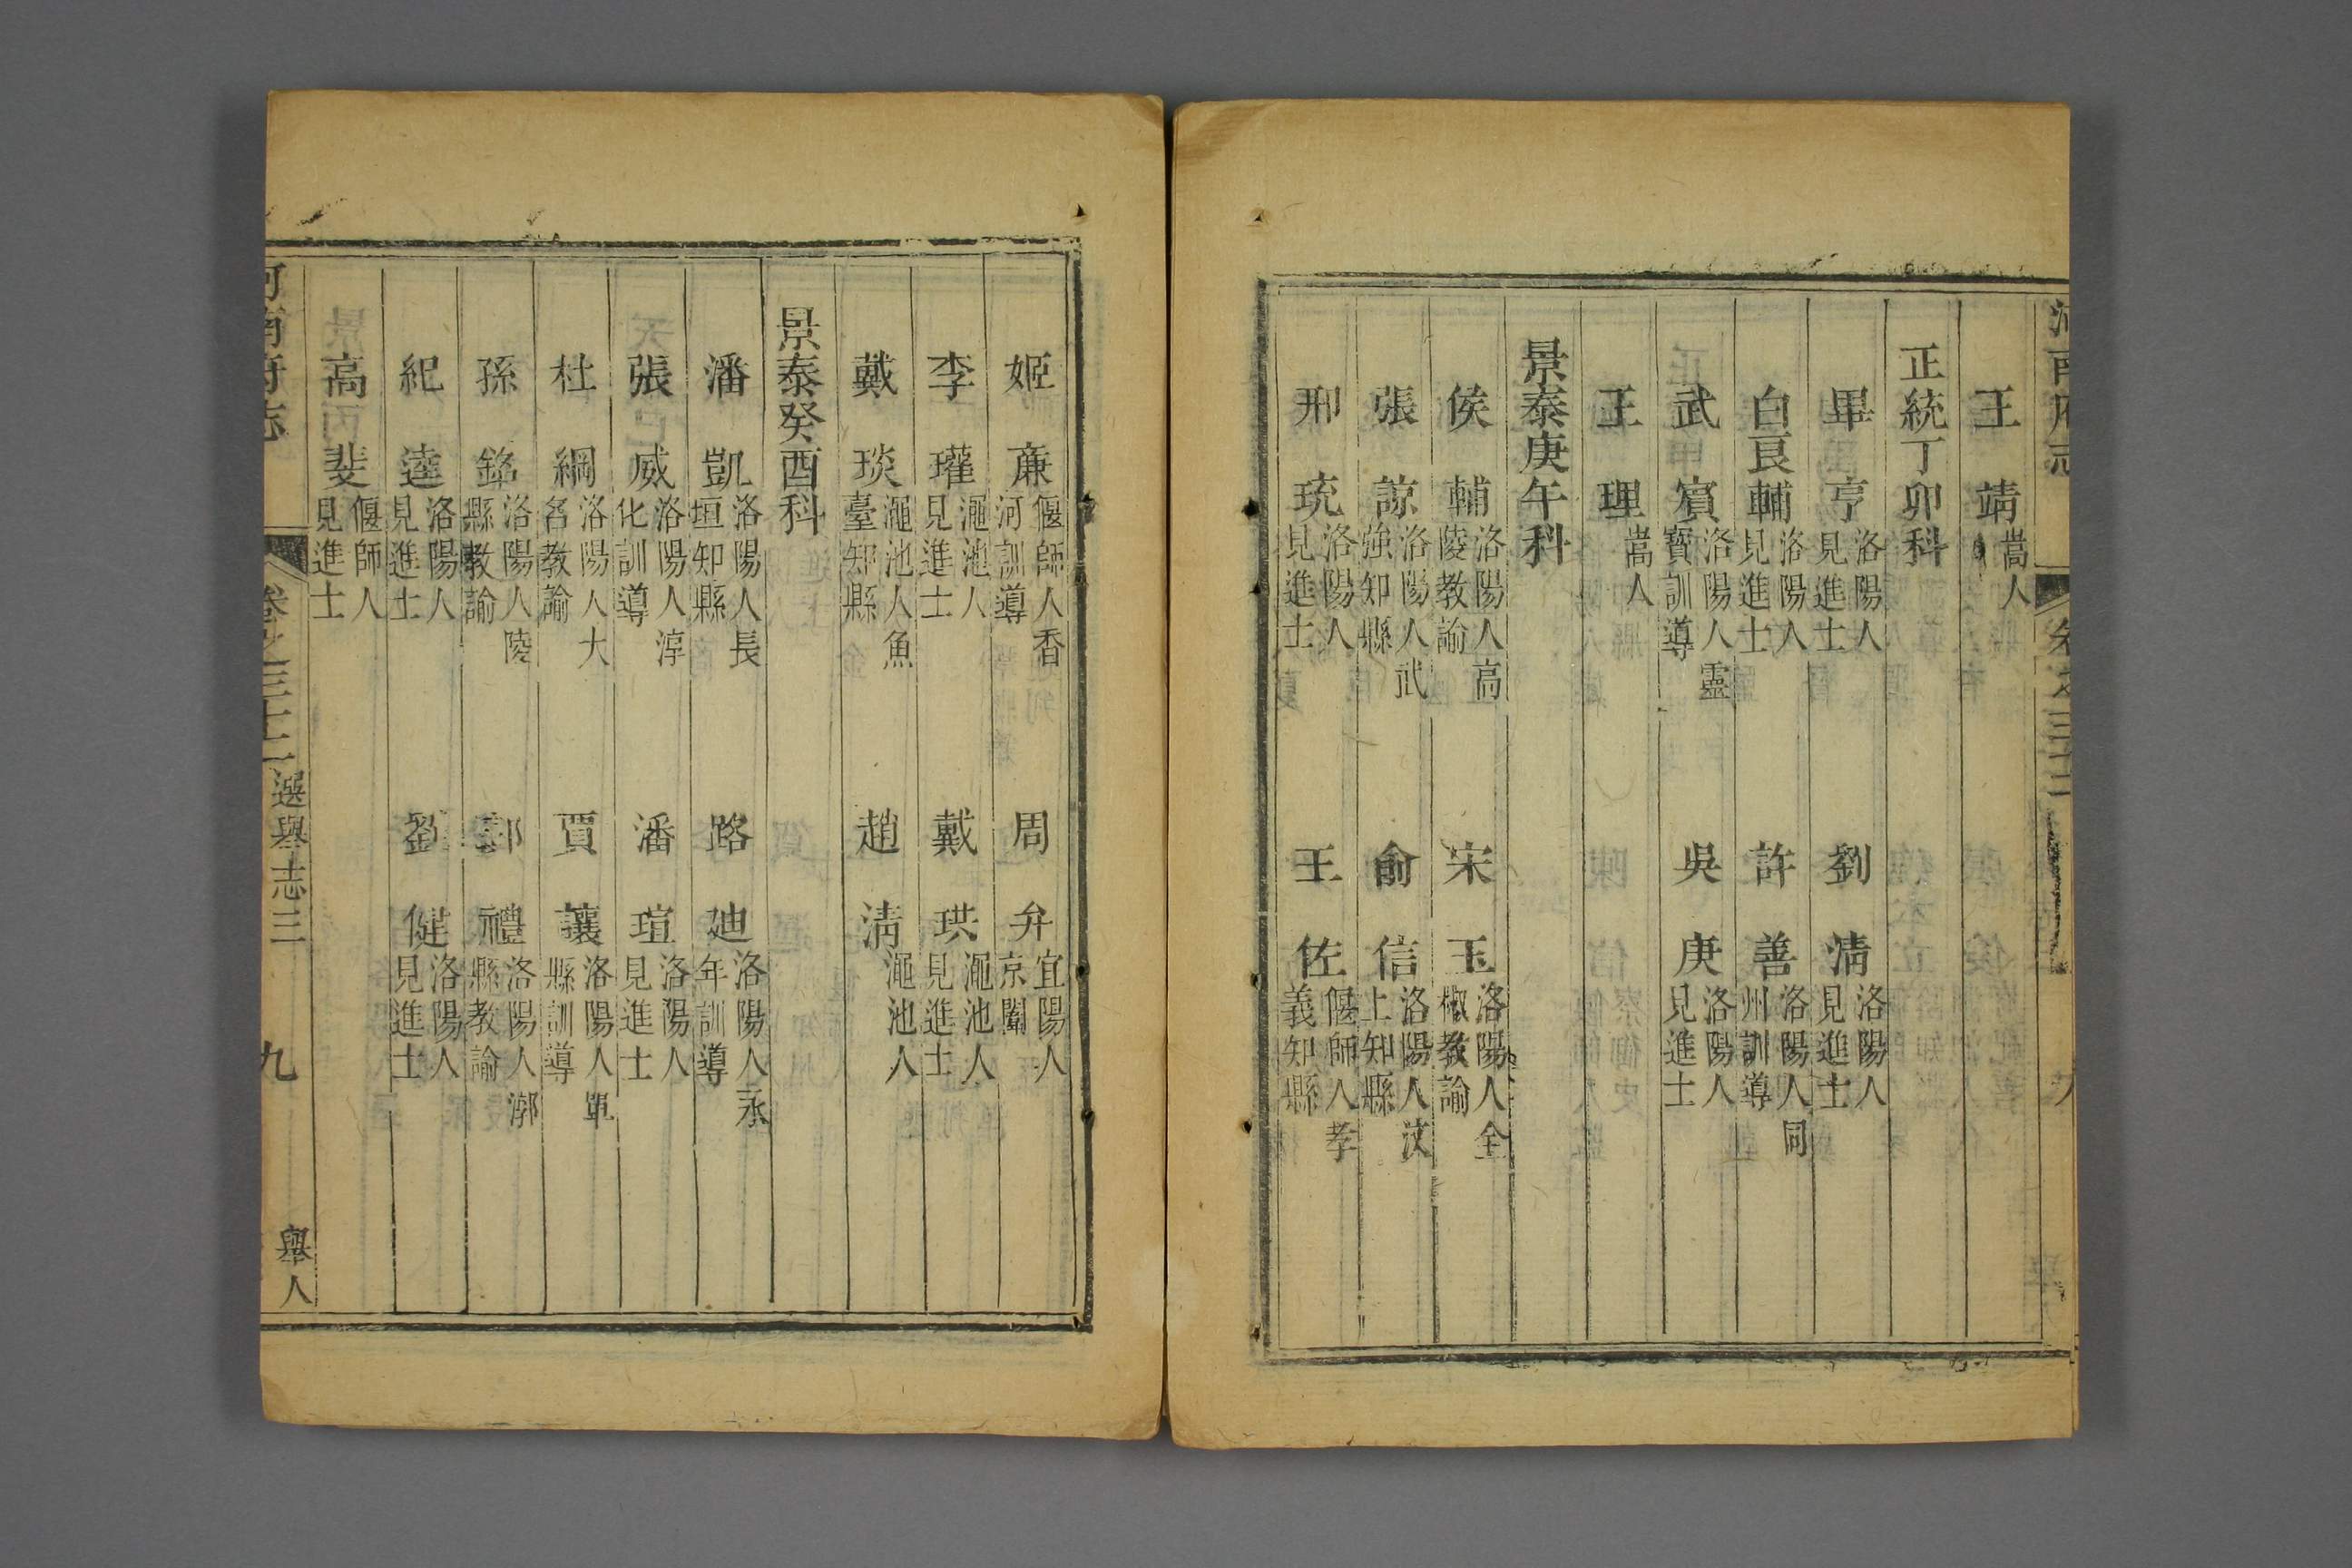 河南府志
卷之三十二
王靖嵩人
正統丁卯科
畢亨洛陽人見進士
劉清洛陽人見進士
白良輔洛陽人見進士
許善洛陽人同州訓導
武賓洛陽人靈寶訓導
吳庚洛陽人見進士
王理嵩人
景泰庚午科
侯輔洛陽人高陵教諭
宋玉洛陽人全椒教諭
張諒洛陽人武強知縣
俞信洛陽人汶上知縣
邢琉洛陽人見進士
王佐偃師人孝義知縣
姬亷偃師人香河訓導
周弁宜陽人京闈
李瓘澠池人見進士
戴珙澠池人見進士
戴琰澠池人魚臺知縣
趙清澠池人
景泰癸酉科
潘凱洛陽人長垣知縣
路廸洛陽人永年訓導
張威洛陽人淳化訓導
潘瑄洛陽人見進士
杜綱洛陽人大名教諭
賈讓洛陽人單縣訓導
孫銘洛陽人陵縣教諭
郭禮洛陽人漷縣教諭
紀逵洛陽人見進士
劉健洛陽人見進士
高斐偃師人見進士
河南府志
卷之三十二
選舉志三
九
舉人